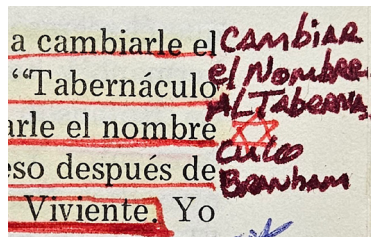 a cambiarle el
“Tabernáculo
arle el nombre
eso después de
Viviente. Yo
CAMBIAR
el NOMBRE
AL TABERNA
CULO
BRANHAM